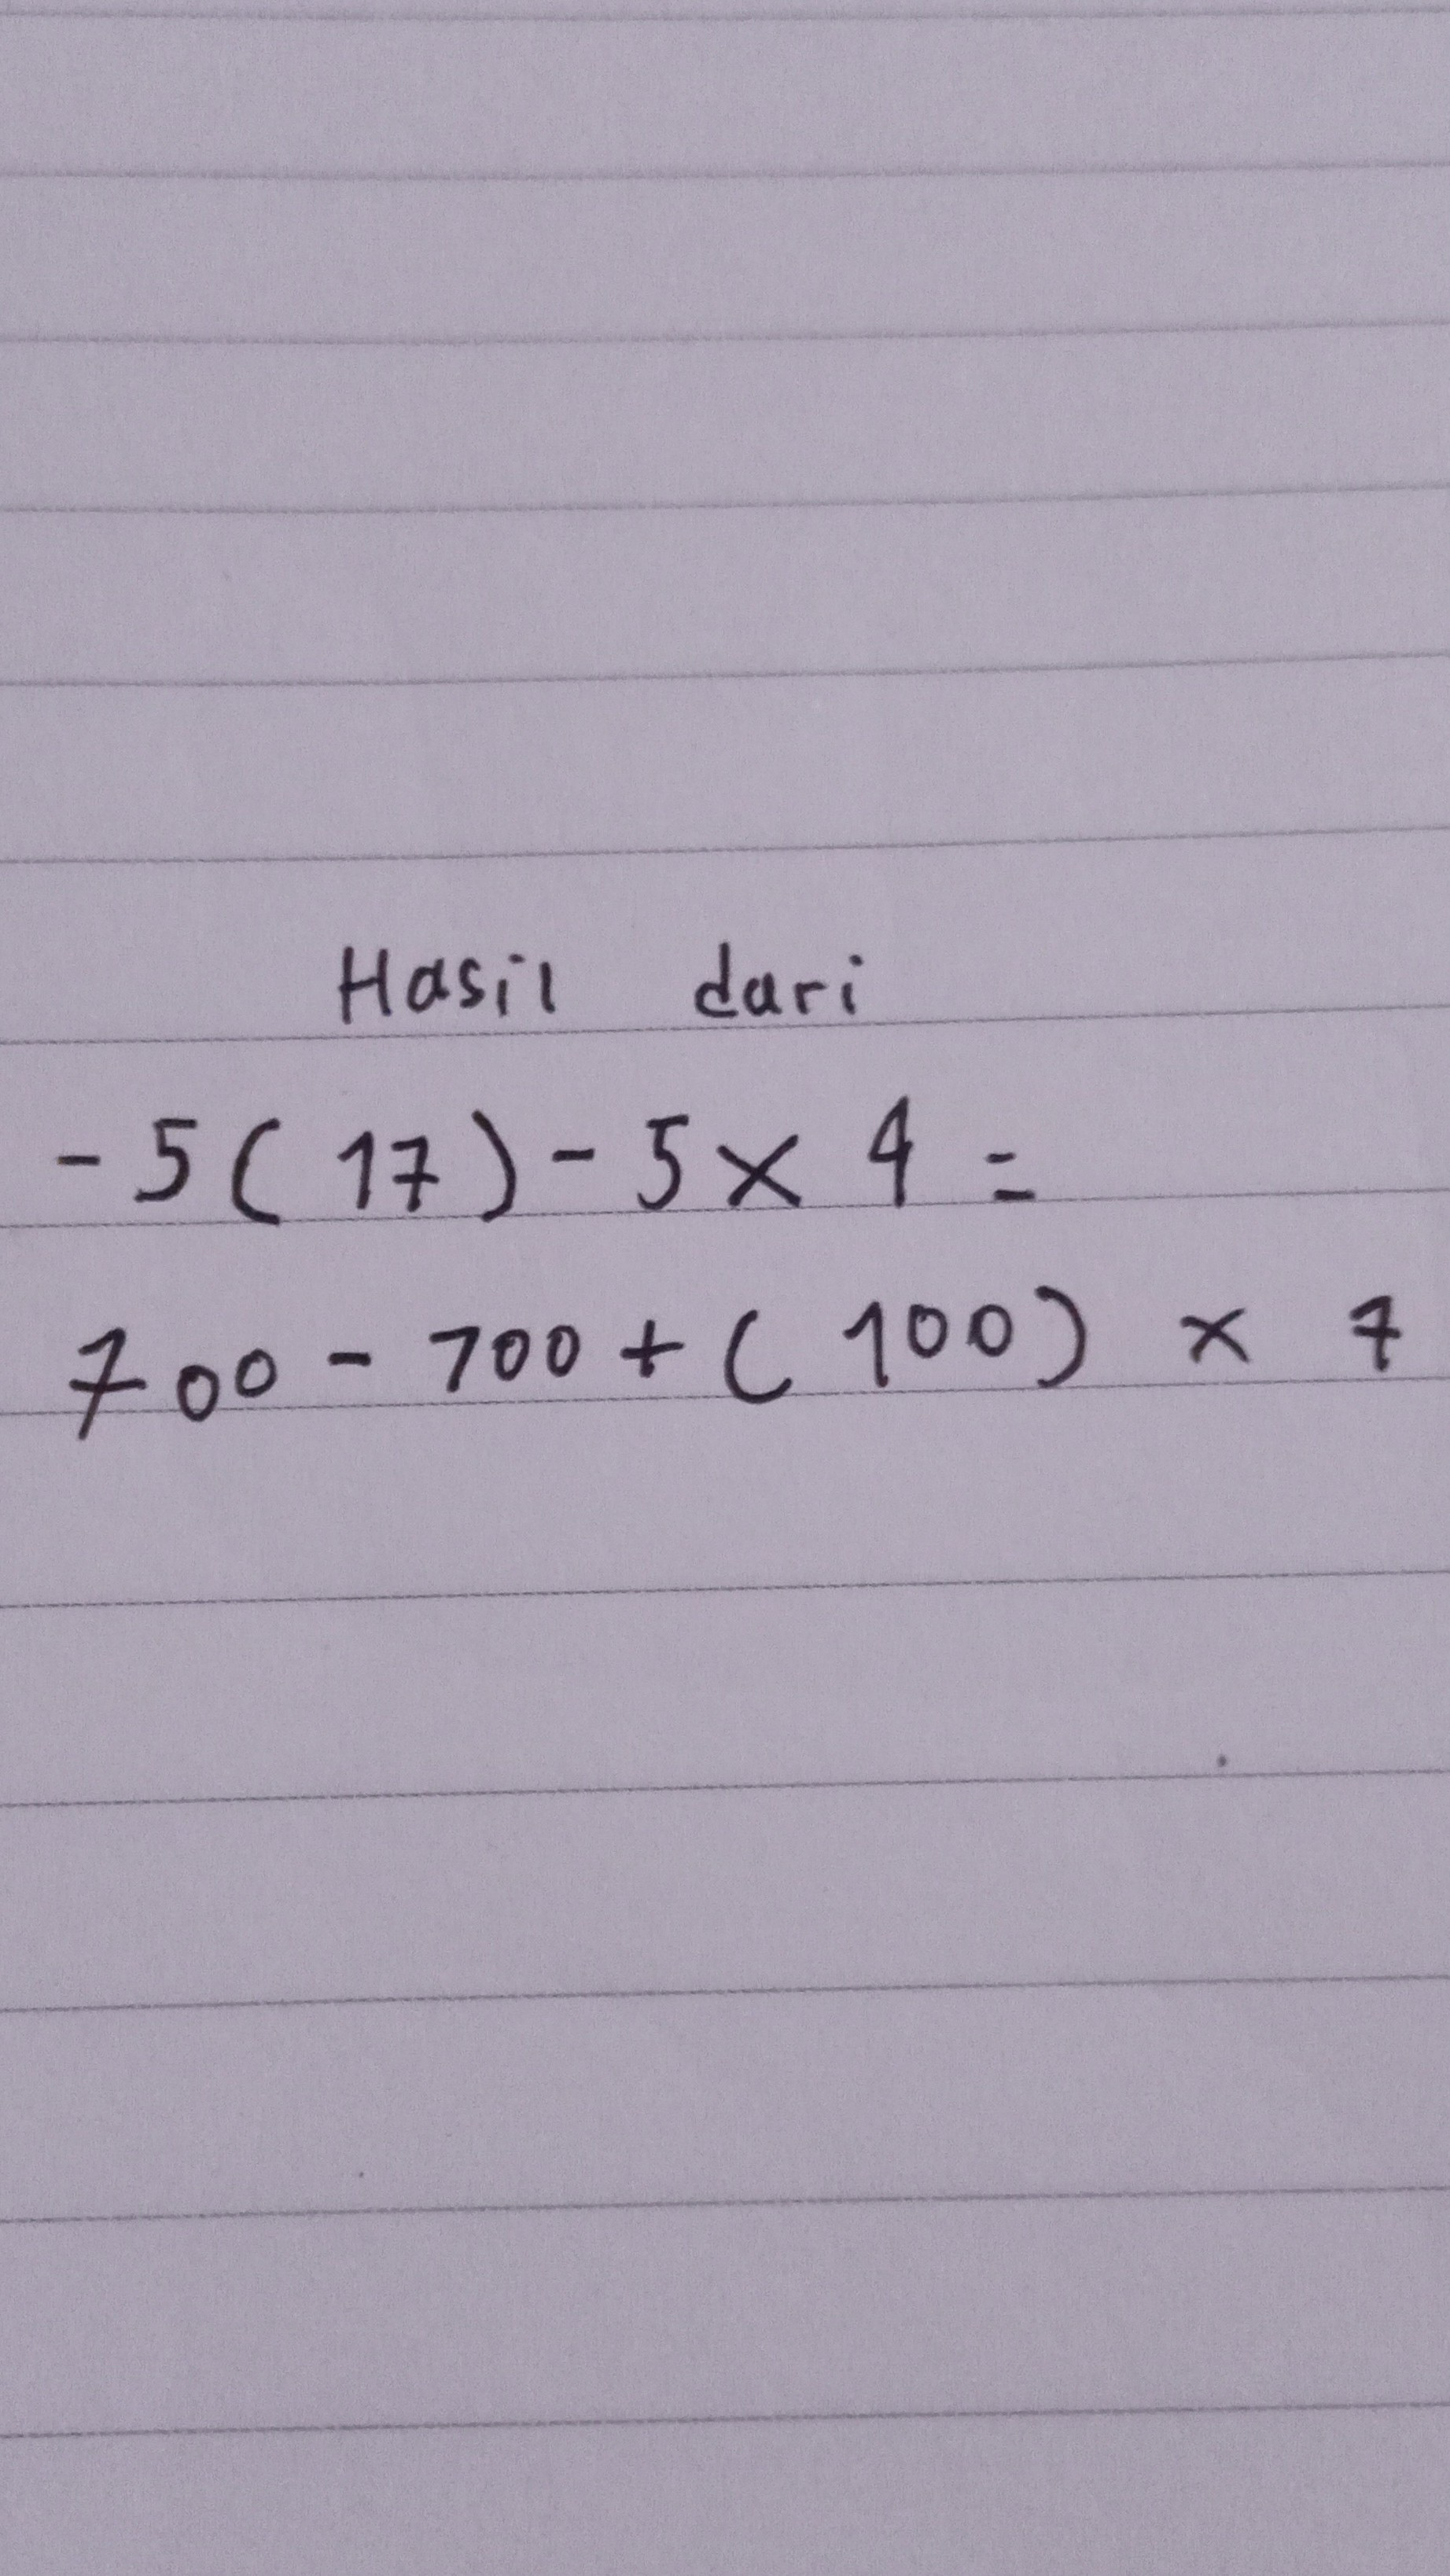 Hasil dari
-5(17)-5×4=
700-700+(100)×7